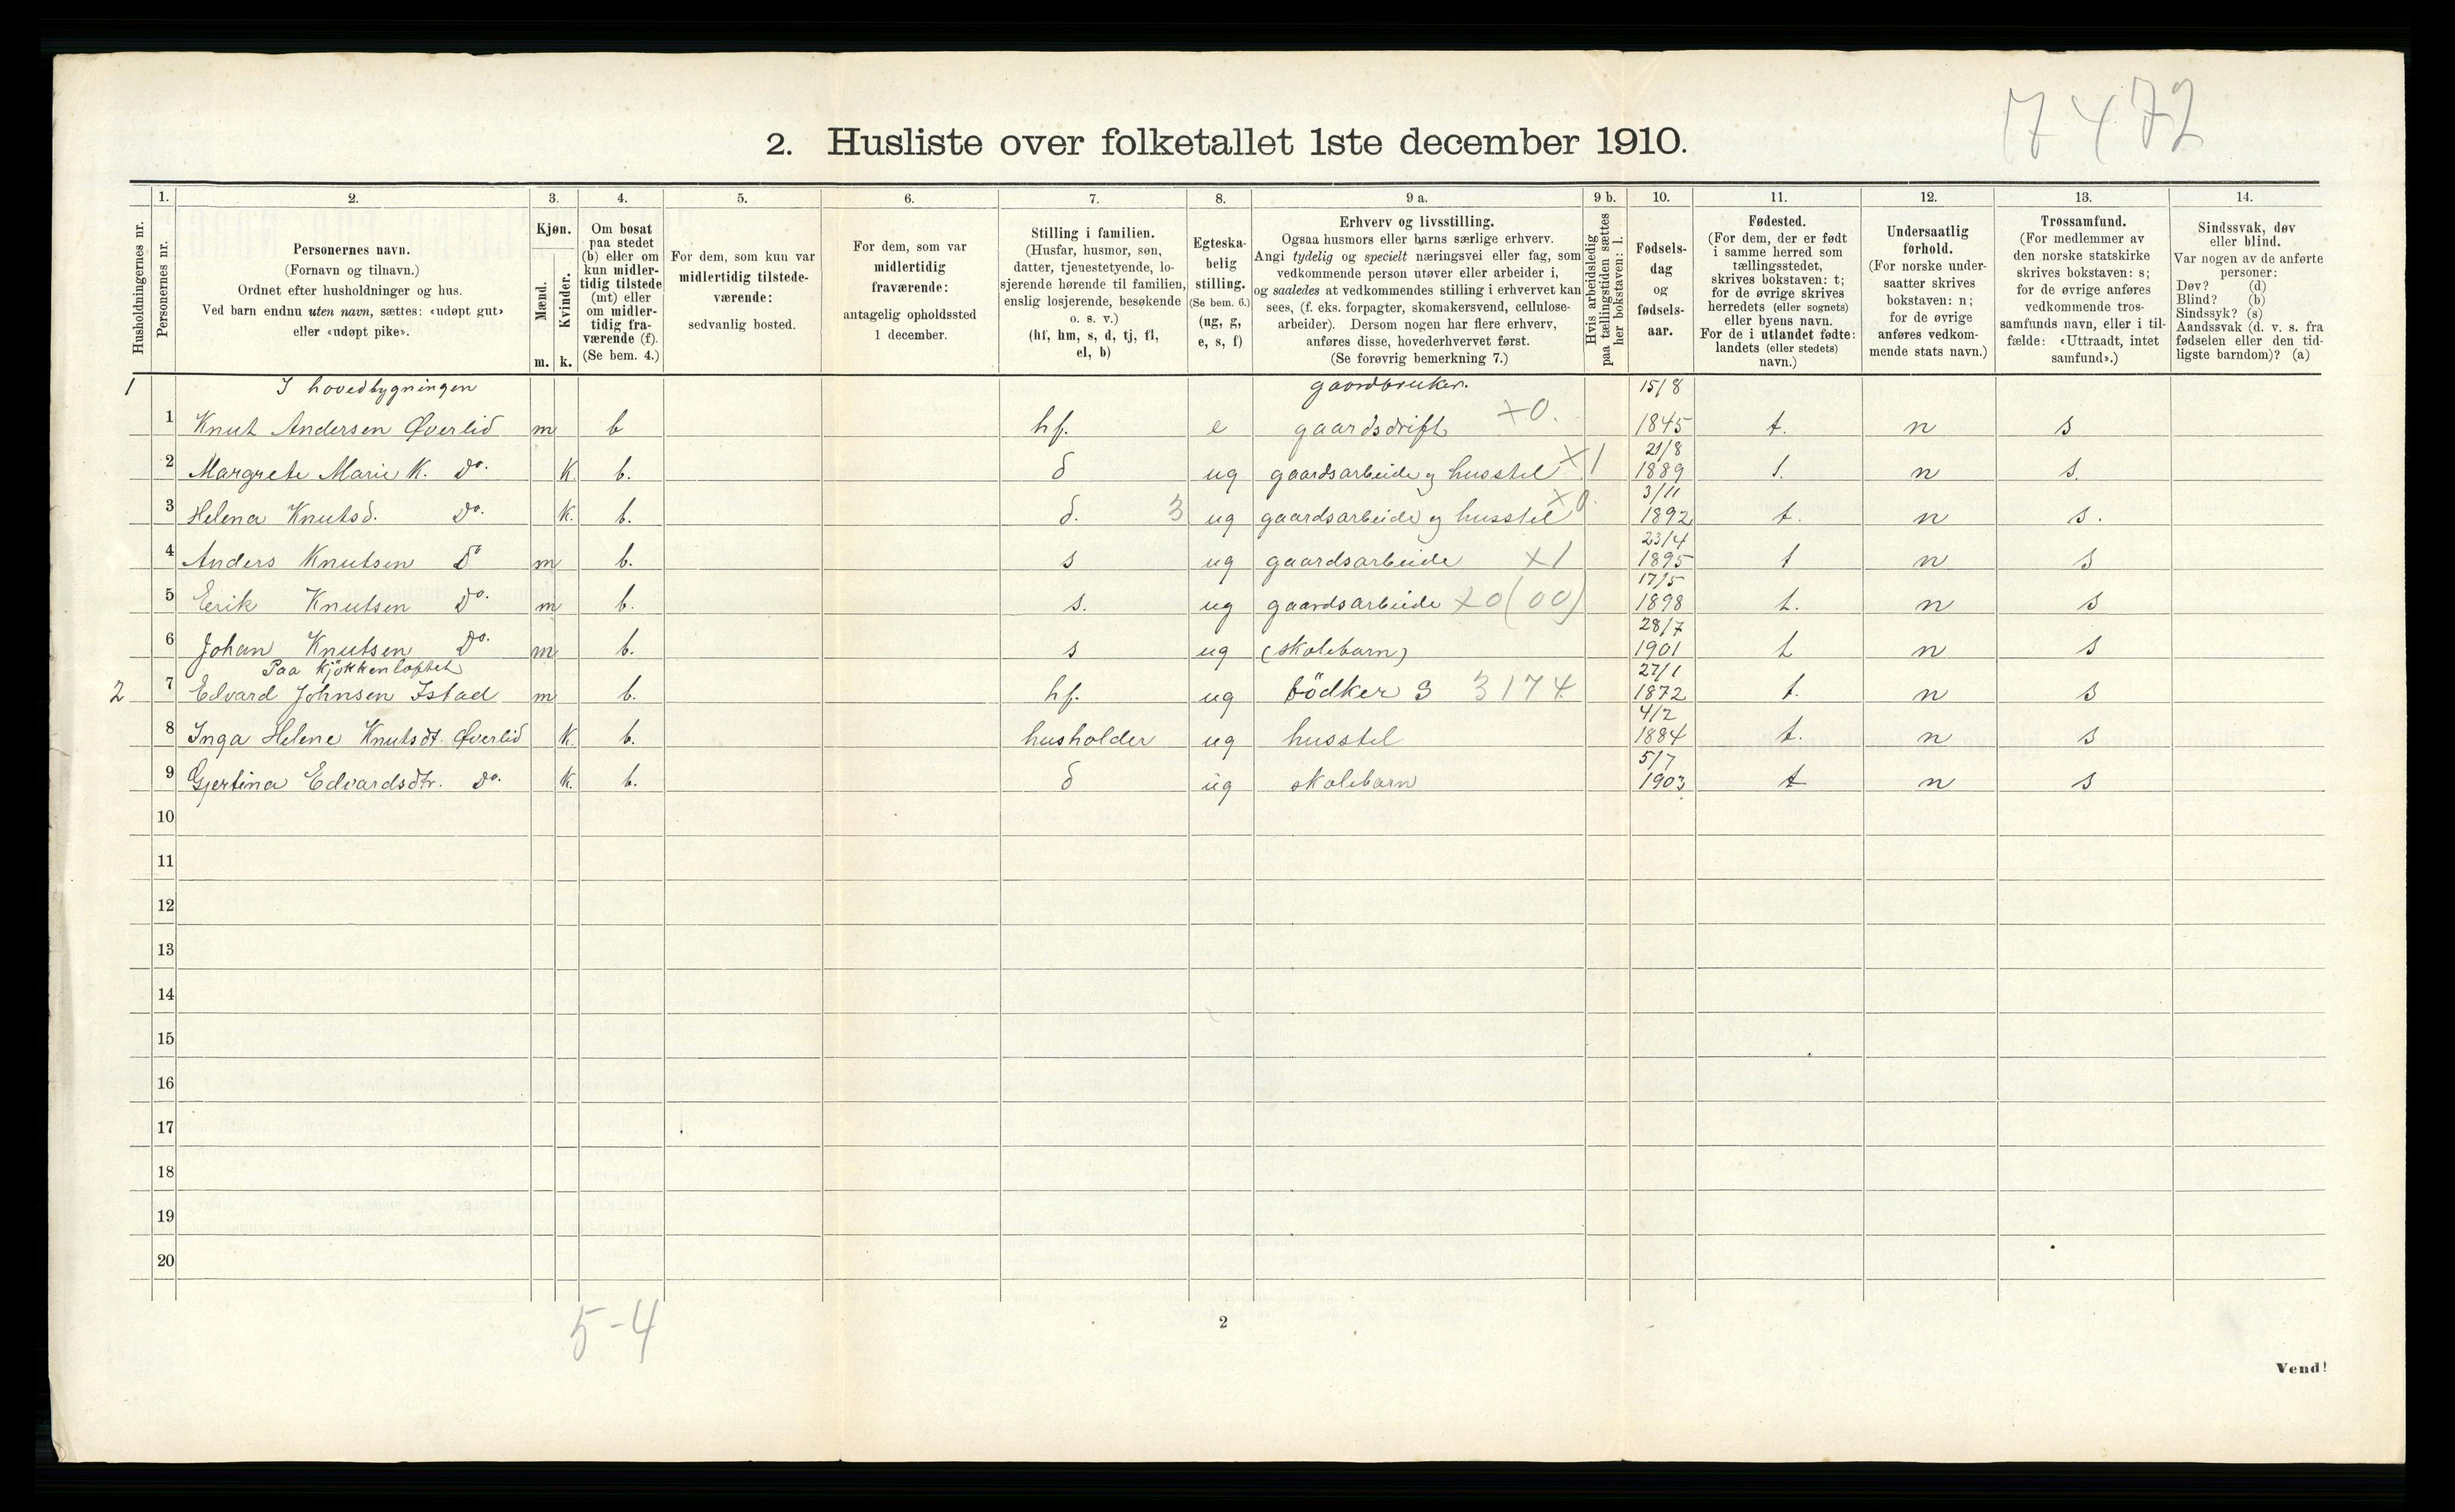 7472
2. Husliste over folketallet 1ste december 1910.
Husholdningernes nr.
1.
Personernes nr.
2.
Personernes navn.
(Fornavn og tilnavn.)
Ordnet efter husholdninger og hus.
Ved barn endnu uten navn, sættes: «udøpt gut»
eller «udøpt pike».
3.
Kjøn.
Mænd.
m.
Kvinder.
k.
4.
Om bosat
paa stedet
(b) eller om
kun midler-
tidig tilstede
(mt) eller
om midler-
tidig fra-
værende (f).
(Se bem. 4.)
5.
For dem, som kun var
midlertidig tilstede-
værende:
sedvanlig bosted.
6.
For dem, som var
midlertidig
fraværende:
antagelig opholdssted
1 december.
7.
Stilling i familien.
(Husfar, husmor, søn,
datter, tjenestetyende, lo-
sjerende hørende til familien,
enslig losjerende, besøkende
o. s. v.)
(hf, hm, s, d, tj, fl,
el, b)
8.
Egteska-
belig
stilling.
(Se bem. 6.)
(ug, g,
e, s, f)
9 a.
Erhverv og livsstilling.
Ogsaa husmors eller barns særlige erhverv.
Angi tydelig og specielt næringsvei eller fag, som
vedkommende person utøver eller arbeider i,
og saaledes at vedkommendes stilling i erhvervet kan
sees, (f. eks. forpagter, skomakersvend, cellulose-
arbeider). Dersom nogen har flere erhverv,
anføres disse, hovederhvervet først.
(Se forøvrig bemerkning 7.)
9 b.
Hvis arbeidsledig
paa tællingstiden sættes
her bokstaven: l.
10.
Fødsels-
dag
og
fødsels-
aar.
11.
Fødested.
(For dem, der er født
i samme herred som
tællingsstedet,
skrives bokstaven: t;
for de øvrige skrives
herredets (eller sognets)
eller byens navn.
For de i utlandet fødte:
landets (eller stedets)
navn.)
12.
Undersaatlig
forhold.
(For norske under-
saatter skrives
bokstaven: n;
for de øvrige
anføres vedkom-
mende stats navn.)
13.
Trossamfund.
(For medlemmer av
den norske statskirke
skrives bokstaven: s;
for de øvrige anføres
vedkommende tros-
samfunds navn, eller i til-
fælde: «Uttraadt, intet
samfund».)
14.
Sindssvak, døv
eller blind.
Var nogen av de anførte
personer:
Døv? (d)
Blind? (b)
Sindssyk? (s)
Aandssvak (d. v. s. fra
fødselen eller den tid-
ligste barndom)? (a)
1 I hovedbygningen gaardbruker. 15/8
1 Knut Andersen Øverlid m b hf. e gaardsdrift x0. 1845 t. n s
2 Margrete Marie K. do. k. b. d ug gaardsarbeide og husstel x1 21/8 1889 t. n s.
3 Helena Knutsd. do. k. b. d. 3 ug gaardsarbeide og husstel x0. 3/11 1892 t. n s.
4 Anders Knutsen do m b. s ug gaardsarbeide x1 23/4 1895 t n s
5 Erik Knutsen do. m b. s. ug gaardsarbeide x0(00) 17/5 1898 t. n s
6 Johan Knutsen do. m b. s ug (skolebarn) 28/7 1901 t n s
Paa kjökkenloftet
2 7 Edvard Johnsen Istad m b. hf. ug bödker S 3174 27/1 1872 t. n s
8 Inga Helene Knutsdt. Øverlid k. b. husholder ug husstel 4/2 1884 t. n s
9 Gjertina Edvardsdtr. do. k. b. d ug skolebarn 5/7 1903 t n s
10
11
12
13
14
15
16
17
18
19
20
5-4
2
Vend!